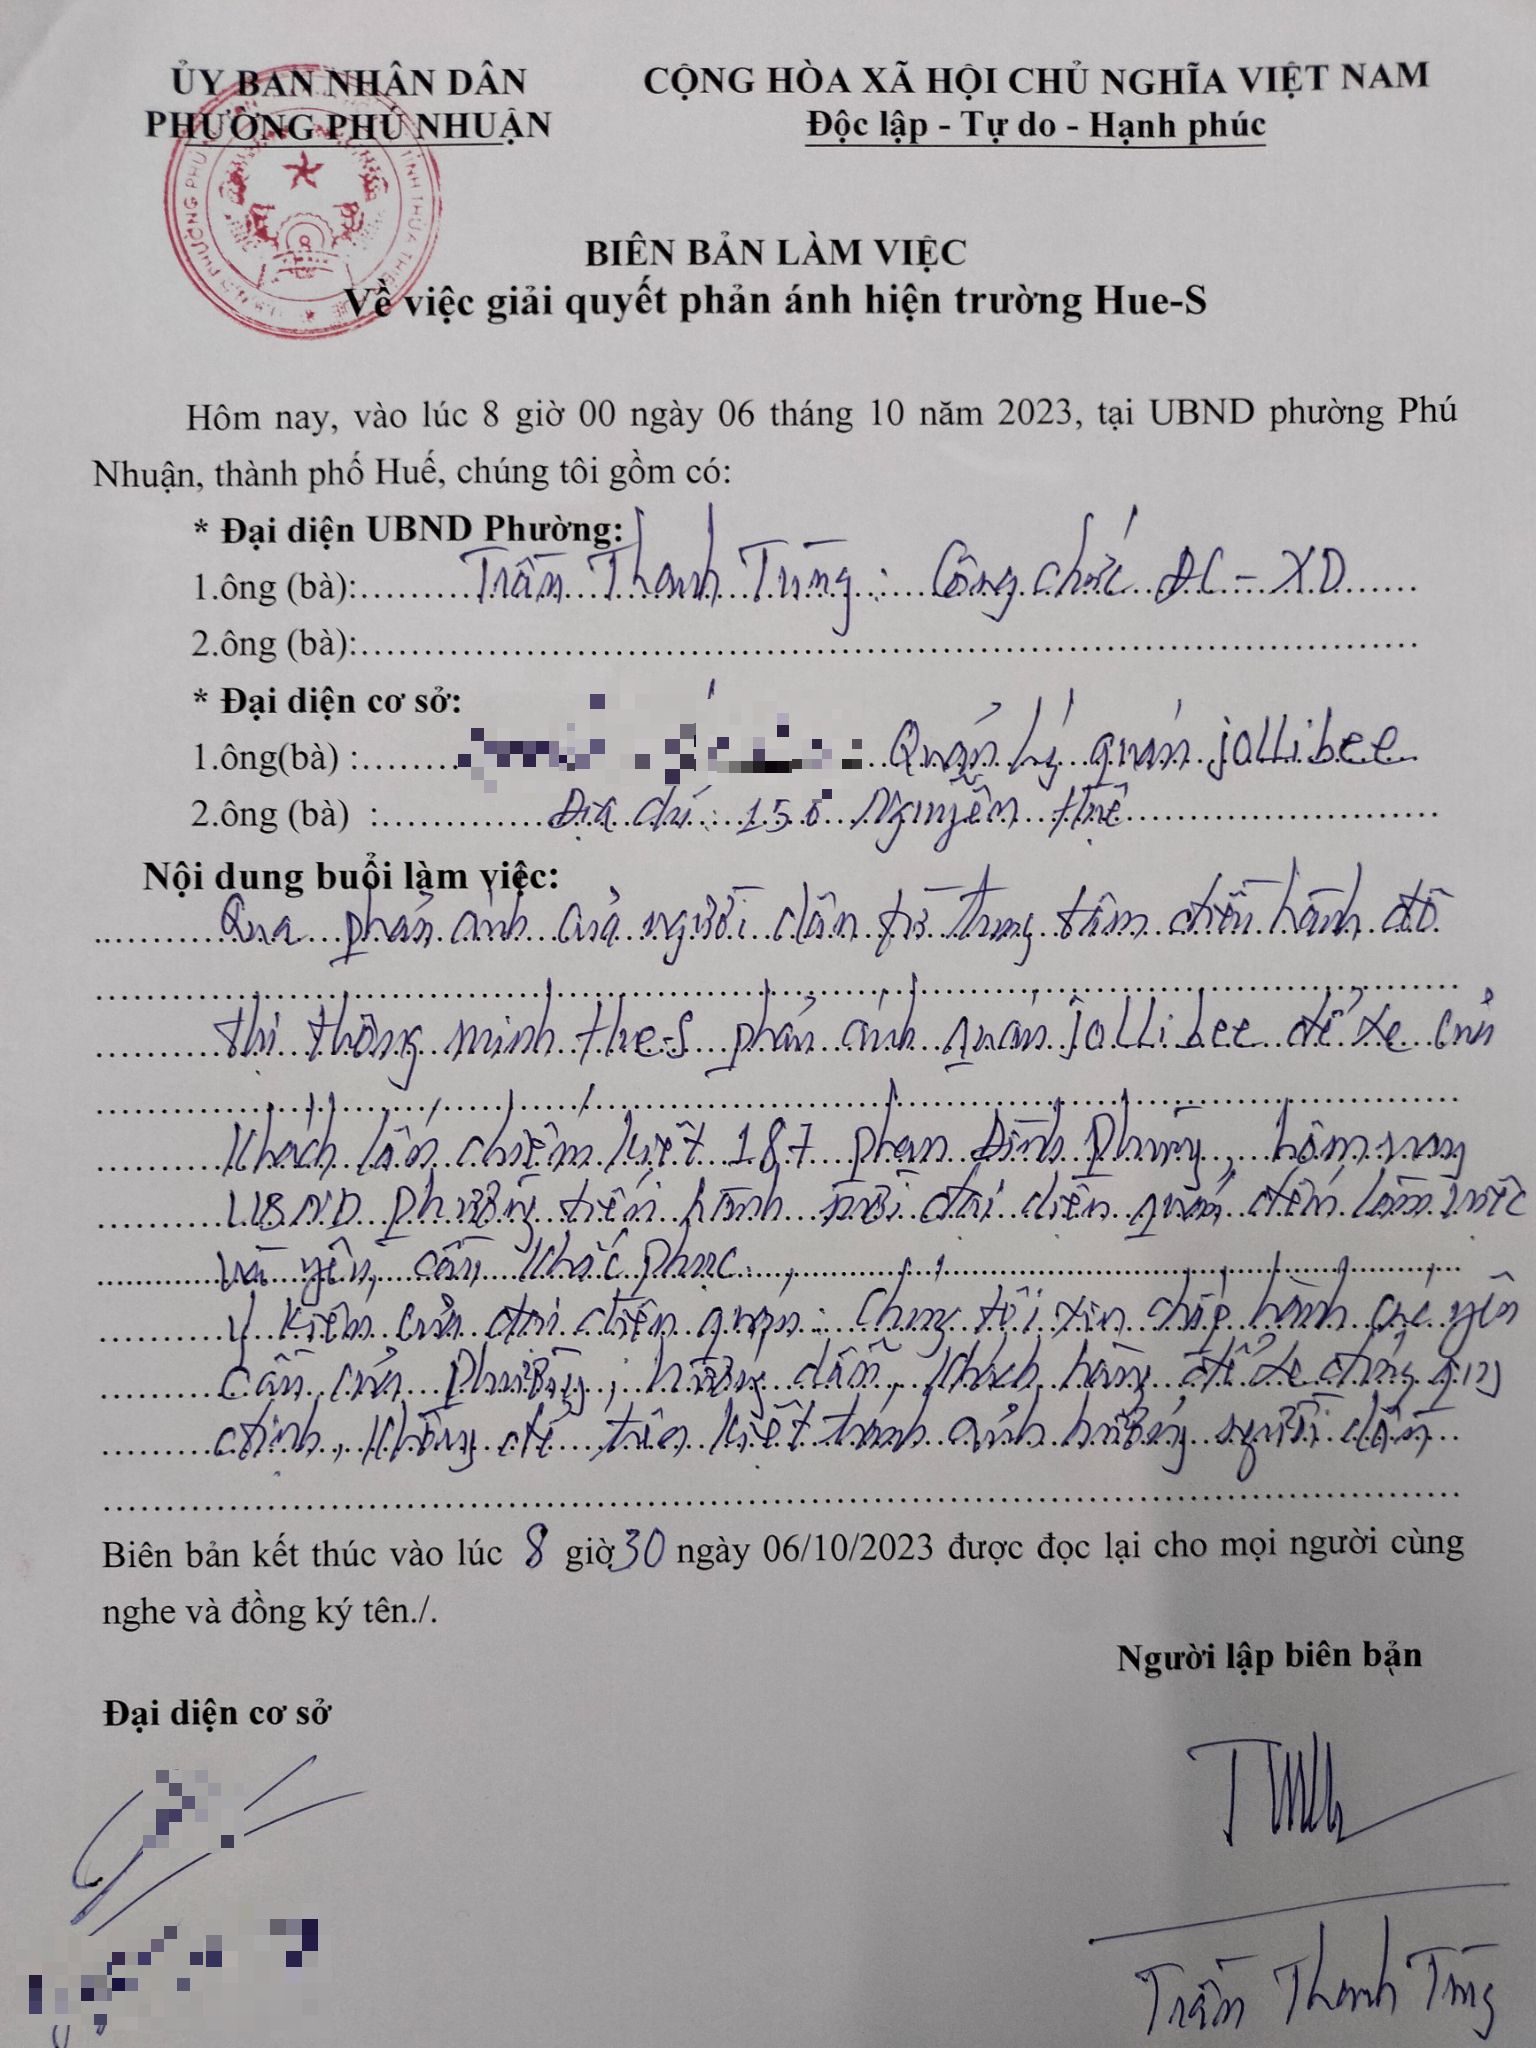 ỦY BAN NHÂN DÂN
PHƯỜNG PHÚ NHUẬN
CỘNG HÒA XÃ HỘI CHỦ NGHĨA VIỆT NAM
Độc lập - Tự do - Hạnh phúc
BIÊN BẢN LÀM VIỆC
Về việc giải quyết phản ánh hiện trường Hue-S
Hôm nay, vào lúc 8 giờ 00 ngày 06 tháng 10 năm 2023, tại UBND phường Phú
Nhuận, thành phố Huế, chúng tôi gồm có:
* Đại diện UBND Phường:
1.ông (bà): Trần Thanh Tùng : Công chức ĐC - XD
2.ông (bà):
* Đại diện cơ sở:
1.ông(bà) : Quản lý quán jollibee
2.ông (bà) : Địa chỉ : 150 Nguyễn Huệ
Nội dung buổi làm việc:
Qua phản ánh của người dân từ Trung tâm điều hành đô
thị thông minh Hue-S phản ánh quán jollibee để xe của
khách lấn chiếm kiệt 187 Phan Đình Phùng, hôm nay
UBND phường tiến hành mời đại diện quán đến làm việc
và yêu cầu khắc phục.
Ý kiến của đại diện quán : Chúng tôi xin chấp hành các yêu
cầu của phường, hướng dẫn khách hàng để xe đúng quy
định, không để trên kiệt tránh ảnh hưởng người dân
Biên bản kết thúc vào lúc 8 giờ 30 ngày 06/10/2023 được đọc lại cho mọi người cùng
nghe và đồng ký tên./.
Người lập biên bản
Đại diện cơ sở
Trần Thanh Tùng